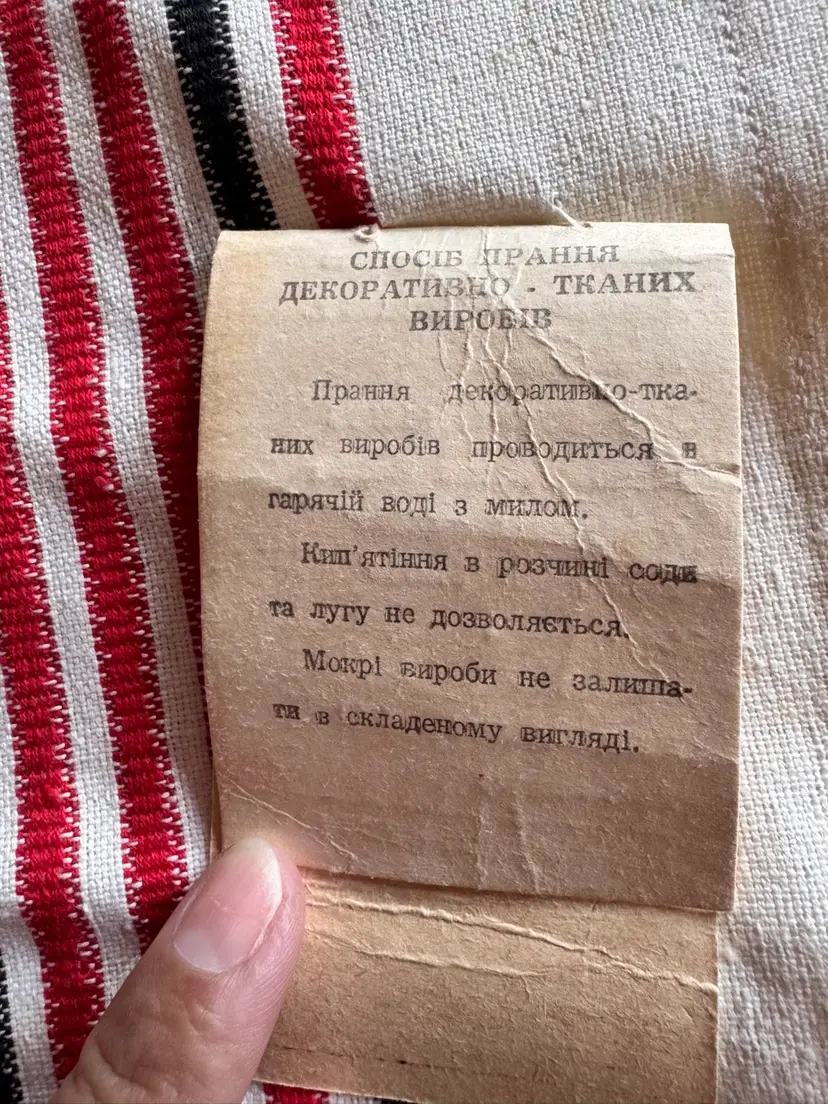 СПОСІБ ПРАННЯ
ДЕКОРАТИВНО - ТКАНИХ
ВИРОБІВ
Прання декоративно-тка-
них виробів проводиться в
гарячій воді з милом.
Кип'ятіння в розчині соди
та лугу не дозволяється.
Мокрі вироби не залиша-
ти в складеному вигляді.